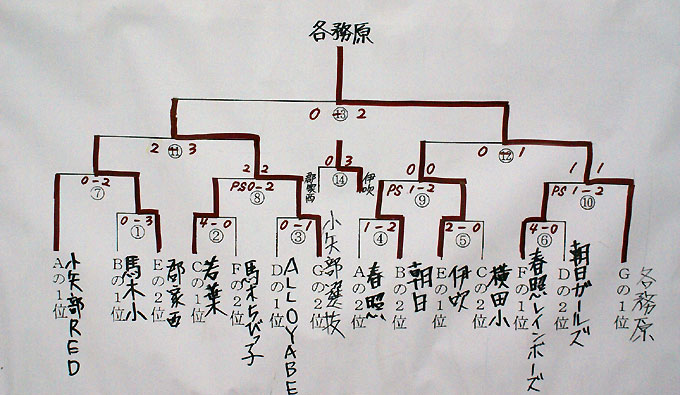 各務原
0 ⑬ 2
2 ⑪ 3
0 ⑫ 1
0 3
⑭
郡家西
伊吹
0-2
⑦
2 2
PS0-2
⑧
0 0
PS 1-2
⑨
1 1
PS 1-2
⑩
0-3
①
4-0
②
0-1
③
1-2
④
2-0
⑤
4-0
⑥
Aの1位
小矢部RED
Bの1位
馬木小
Eの2位
郡家西
Cの1位
若葉
Fの2位
馬木ちびっ子
Dの1位
ALLOYABE
Gの2位
小矢部選抜
Aの2位
春照
Bの2位
朝日
Eの1位
伊吹
Cの2位
横田小
Fの1位
春照レインボーズ
Dの2位
朝日ガールズ
Gの1位
各務原